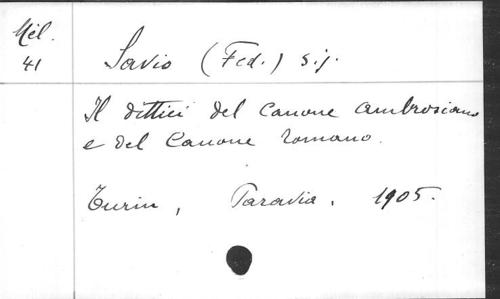 Mél.
41
Savio (Fed.) s.j.
Il dittici del Canone ambrosiano
e del Canone romano.
Turin, Paravia, 1905.